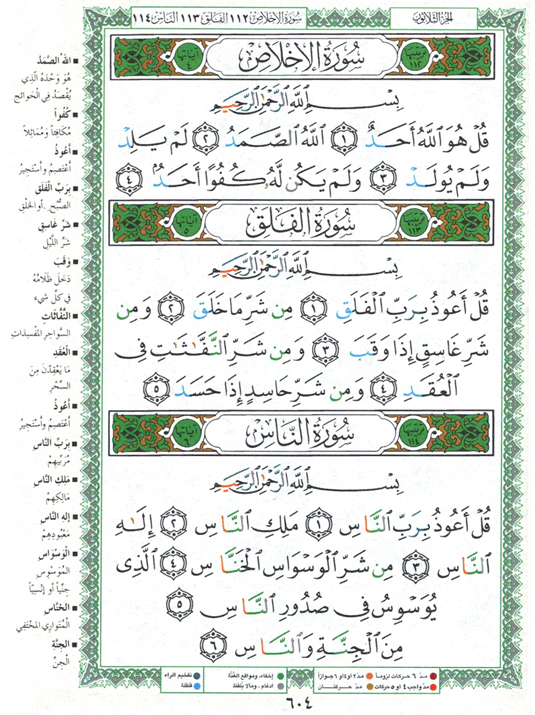 الجزء الثلاثون
سورة الإخلاص ١١٢ الفلق ١١٣ الناس ١١٤
سُورَةُ الإِخْلَاصِ
بِسْمِ اللَّهِ الرَّحْمَٰنِ الرَّحِيمِ
قُلْ هُوَ اللَّهُ أَحَدٌ ١ اللَّهُ الصَّمَدُ ٢ لَمْ يَلِدْ
وَلَمْ يُولَدْ ٣ وَلَمْ يَكُن لَّهُ كُفُوًا أَحَدٌ ٤
سُورَةُ الفَلَقِ
بِسْمِ اللَّهِ الرَّحْمَٰنِ الرَّحِيمِ
قُلْ أَعُوذُ بِرَبِّ الْفَلَقِ ١ مِن شَرِّ مَا خَلَقَ ٢ وَمِن
شَرِّ غَاسِقٍ إِذَا وَقَبَ ٣ وَمِن شَرِّ النَّفَّاثَاتِ فِي
الْعُقَدِ ٤ وَمِن شَرِّ حَاسِدٍ إِذَا حَسَدَ ٥
سُورَةُ النَّاسِ
بِسْمِ اللَّهِ الرَّحْمَٰنِ الرَّحِيمِ
قُلْ أَعُوذُ بِرَبِّ النَّاسِ ١ مَلِكِ النَّاسِ ٢ إِلَٰهِ
النَّاسِ ٣ مِن شَرِّ الْوَسْوَاسِ الْخَنَّاسِ ٤ الَّذِي
يُوَسْوِسُ فِي صُدُورِ النَّاسِ ٥
مِنَ الْجِنَّةِ وَالنَّاسِ ٦
اللهُ الصَّمَدُ
هُوَ وَحْدَهُ الَّذِي
يُقْصَدُ فِي الْحَوَائِجِ
كُفُواً
مُكَافِئاً وَمُمَاثِلاً
أَعُوذُ
أَعْتَصِمُ وَأَسْتَجِيرُ
بِرَبِّ الْفَلَقِ
الصُّبْحِ. أو الخَلْقِ
شَرِّ غَاسِقٍ
شَرِّ اللَّيْلِ
وَقَبَ
دَخَلَ ظَلَامُهُ
فِي كُلِّ شَيْءٍ
النَّفَّاثَاتِ
السَّوَاحِرِ المُفْسِدَاتِ
الْعُقَدِ
مَا يَعْقِدْنَ مِنَ
السِّحْرِ
أَعُوذُ
أَعْتَصِمُ وَأَسْتَجِيرُ
بِرَبِّ النَّاسِ
مُرَبِّيهِمْ
مَلِكِ النَّاسِ
مَالِكِهِمْ
إِلَهِ النَّاسِ
مَعْبُودِهِمْ
الْوَسْوَاسِ
المُوَسْوِسِ
جِنِّيّاً أو إِنْسِيّاً
الخَنَّاسِ
الْمُتَوَارِي المُخْتَفِي
الجِنَّةِ
الْجِنِّ
مدّ ٦ حركات لزوماً مدّ ٢ أو ٤ أو ٦ جوازاً
مدّ واجب ٤ أو ٥ حركات مدّ حركتان
إخفاء، ومواقع الغُنَّة
ادغام، وما لا يُلفظ
تفخيم الراء
قلقلة
٦٠٤